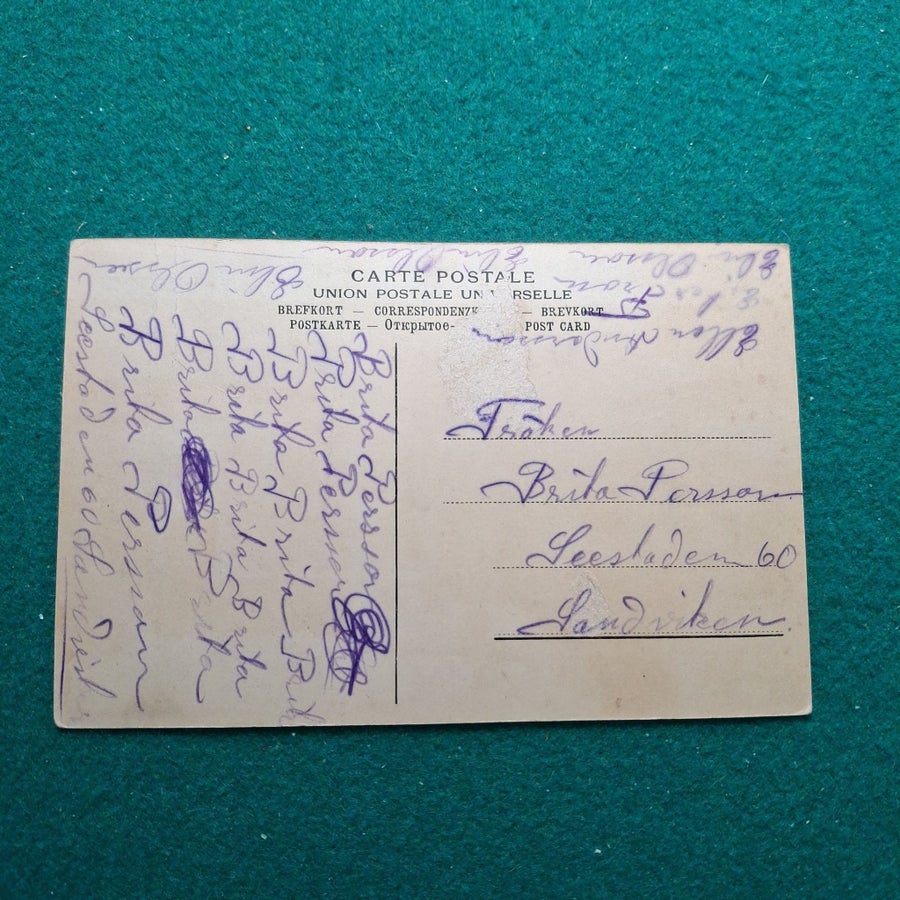 CARTE POSTALE
UNION POSTALE UN RSELLE
BREFKORT — CORRESPONDENZK — BREVKORT
POSTKARTE — Открытое- POST CARD
Fröken
Brita Persson
Seestaden 60
Sandviken.
Brita Persson
Brita Persson
Brita Brita Brit
Brita Brita Brita
Brita Brita
Brita Persson
Seestaden 60 Sandvik
Ellen Andersson
Elin Olsson
Elin Olsson
Elin